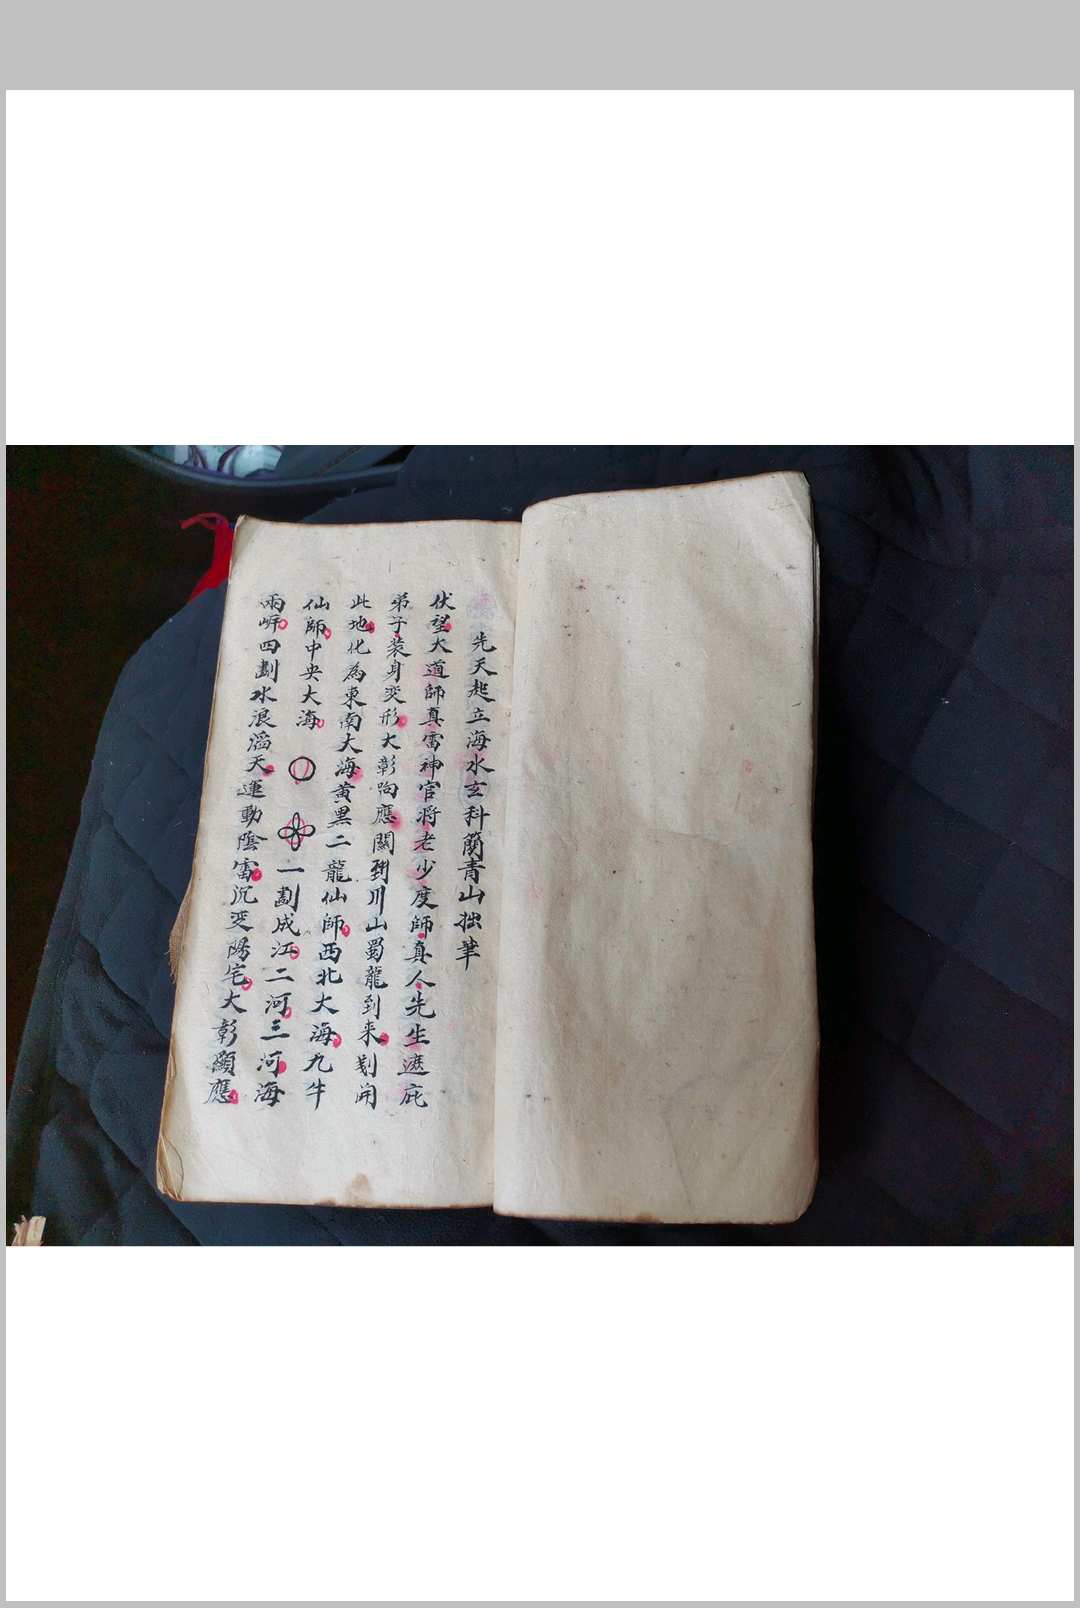 先天起立海水玄科簡青山拙筆
伏望大道師真雷神官将老少度師真人先生遮庇
弟子装身变形大彰响應關到川山蜀龍到来剗開
此地化為東南大海黄黑二龍仙師西北大海九牛
仙師中央大海一劃成江二河三河海
兩岸四劃水浪滔天運動陰雷沉变陽宅大彰顯應